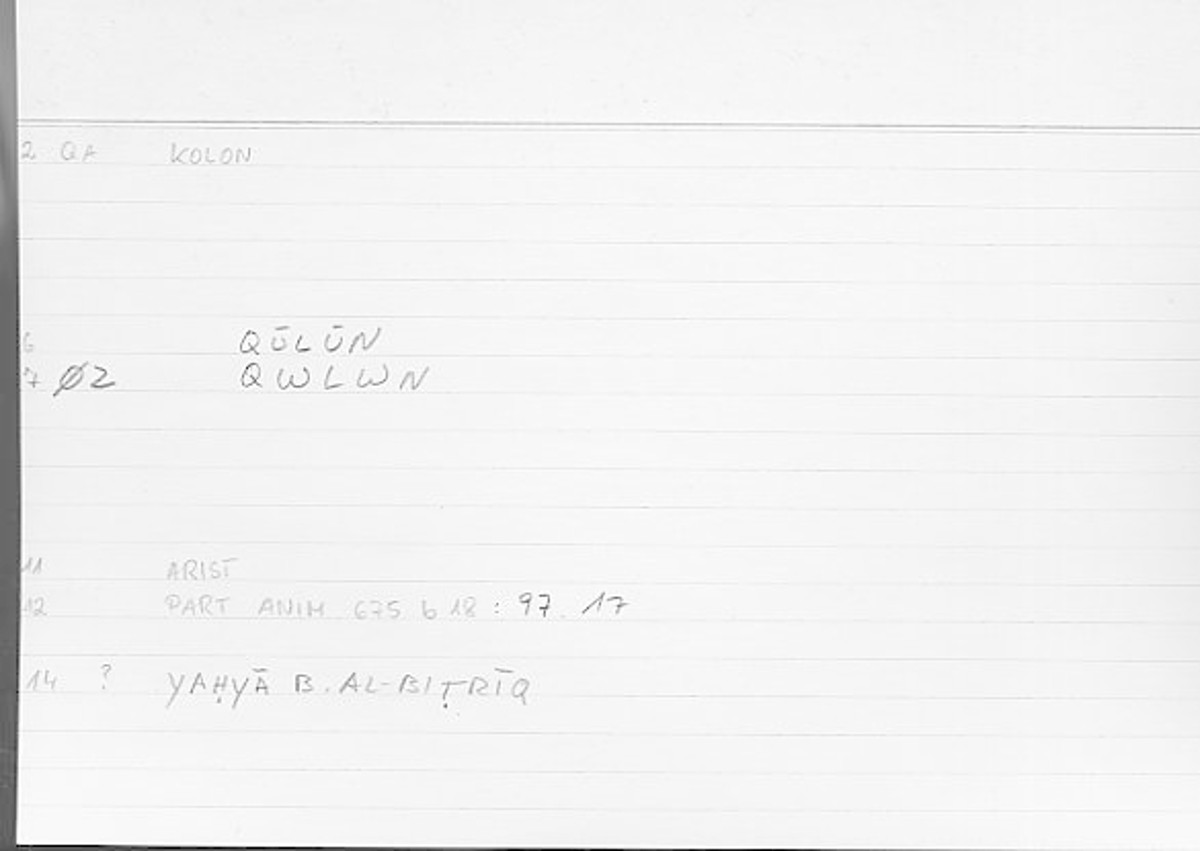 2 QA KOLON
6 QŪLŪN
7 Ø2 QWLWN
11 ARIST
12 PART ANIM 675 b 18 : 97. 17
14 ? YAḤYĀ B. AL-BIṬRĪQ